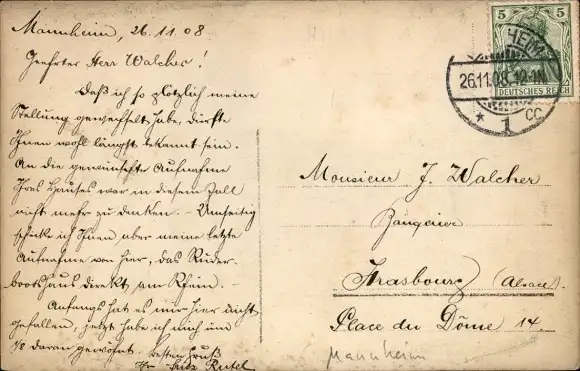 Mannheim, 26.11.08
Geehrter Herr Walcher!
Daß ich so plötzlich meine
Stellung gewechselt habe, dürfte
Ihnen wohl längst bekannt sein.
An die gewünschte Aufnahme
Ihres Hauses war in diesem Fall
nicht mehr zu denken. – Umseitig
schicke ich Ihnen aber meine letzte
Aufnahme von hier, das Ruder-
bootshaus direkt am Rhein. –
Anfangs hat es mir hier nicht
gefallen, jetzt habe ich mich im
daran gewöhnt. Besten Gruß
Ihr Fritz
5 5
DEUTSCHES REICH
HEIM
26.11.08. 12-1N.
* 1 CC
Monsieur J. Walcher
Banquier
Strasbourg (Alsace)
Place du Dôme 14.
Mannheim